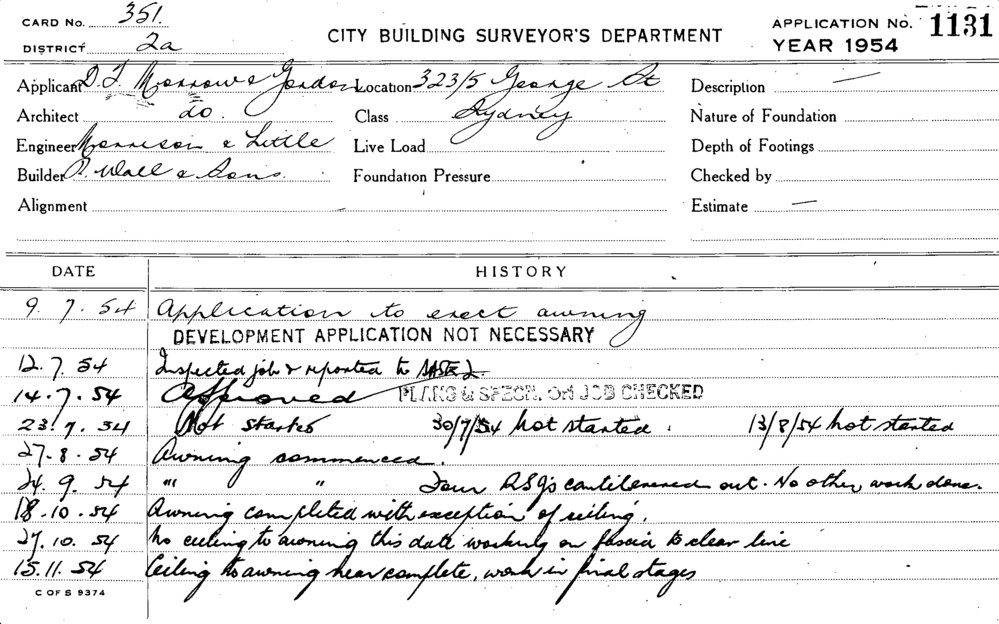 CARD No. 351.
DISTRICT 2a
CITY BUILDING SURVEYOR'S DEPARTMENT
APPLICATION No. 1131
YEAR 1954
Applicant D. T. Morrow & Gordon Location 323/5 George St Description —
Architect do. Class Sydney Nature of Foundation
Engineer Morrison & Little Live Load Depth of Footings
Builder Wall & Sons. Foundation Pressure Checked by
Alignment Estimate —
DATE HISTORY
9.7.54 Application to erect awning
DEVELOPMENT APPLICATION NOT NECESSARY
12.7.54 Inspected job & reported to
14.7.54 Approved PLANS & SPECN. ON JOB CHECKED
23.7.54 Not started 30/7/54 not started. 13/8/54 not started
27.8.54 Awning commenced.
24.9.54 "" " Four RSJs cantilevered out. No other work done.
18.10.54 Awning completed with exception of ceiling.
27.10.54 No ceiling to awning this date working on fascia to clear line
15.11.54 Ceiling to awning near complete, work in final stages
C OF S 9374